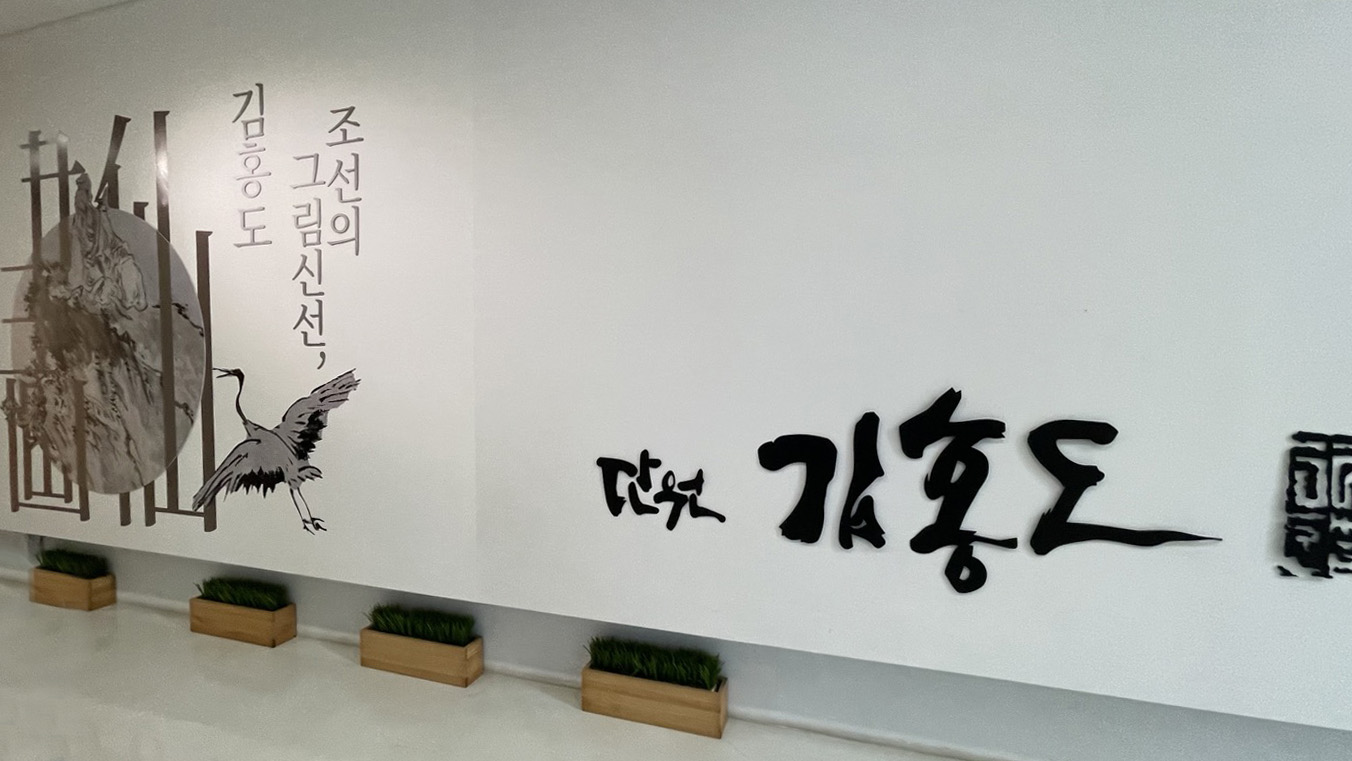 조선의
그림신선,
김홍도
단원 김홍도